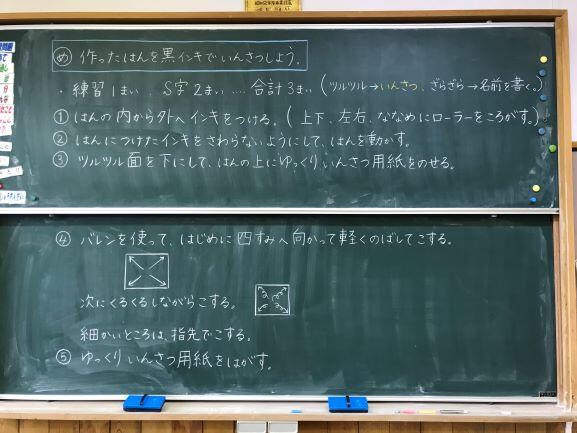 め 作ったはんを黒インキでいんさつしよう。
・練習1まい、S字2まい…. 合計3まい(ツルツル→いんさつ、ざらざら→名前を書く。)
① はんの内から外へインキをつける。(上下、左右、ななめにローラーをころがす。)
② はんにつけたインキをさわらないようにして、はんを動かす。
③ ツルツル面を下にして、はんの上にゆっくりいんさつ用紙をのせる。
④ バレンを使って、はじめに四すみへ向かって軽くのばしてこする。
次にくるくるしながらこする。
細かいところは、指先でこする。
⑤ ゆっくりいんさつ用紙をはがす。